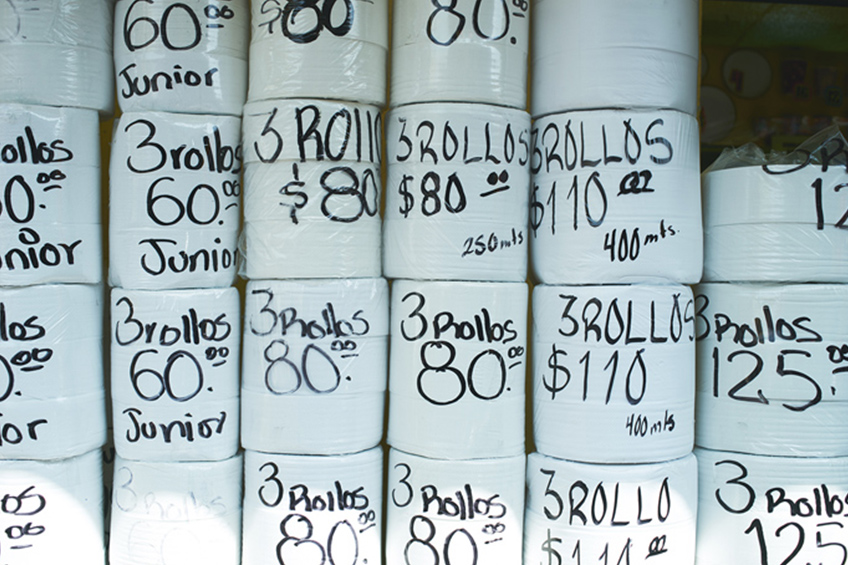 60.00
Junior
$80
80.
ollos
0.00
nior
3rollos
60.00
Junior
3 ROLLO
$80
3ROLLOS
$80 00
250 mts
3ROLLOS
$110 00
400 mts.
12
llos
.00
ior
3rollos
60.00
Junior
3Rollos
80.00
3Rollos
80.00
3ROLLOS
$110
400 mts
3Rollos
125.00
os
00
3 Rollos
80.00
3 Rollos
80.00
3 ROLLO
$110 00
3 Rollos
125